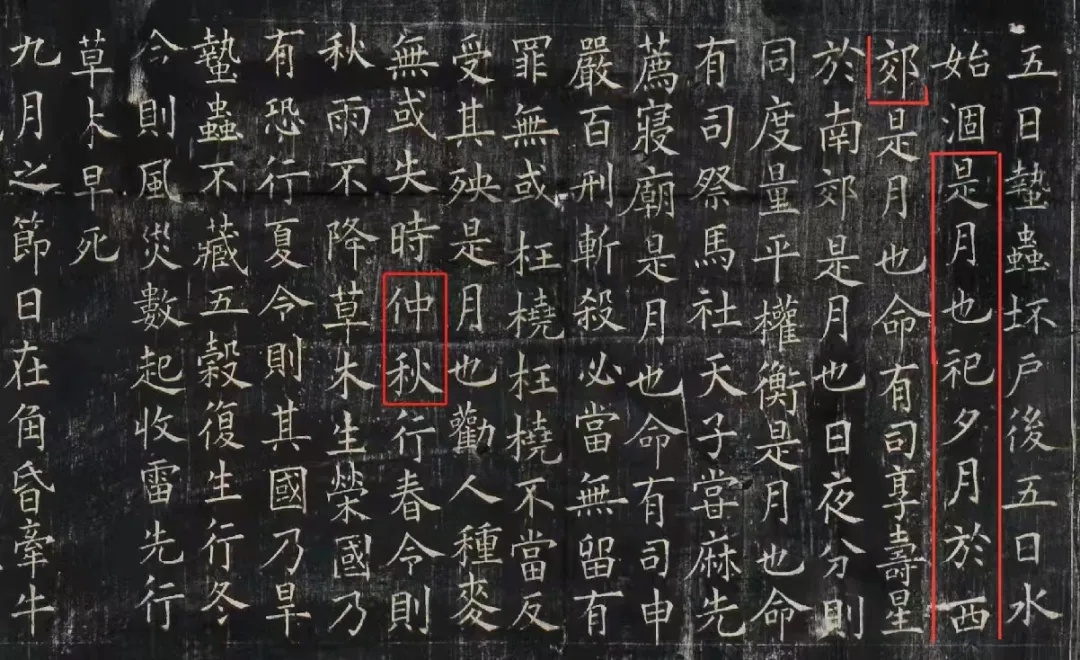 五日蟄蟲坯戶後五日水
始涸是月也祀夕月於西
郊是月也命有司享壽星
於南郊是月也日夜分則
同度量平權衡是月也命
有司祭馬社天子嘗麻先
薦寢廟是月也命有司申
嚴百刑斬殺必當無留有
罪無或枉橈枉橈不當反
受其殃是月也勸人種麥
無或失時仲秋行春令則
秋雨不降草木生榮國乃
有恐行夏令則其國乃旱
蟄蟲不藏五穀復生行冬
令則風災數起收雷先行
草木早死
九月之節日在角昏牽牛